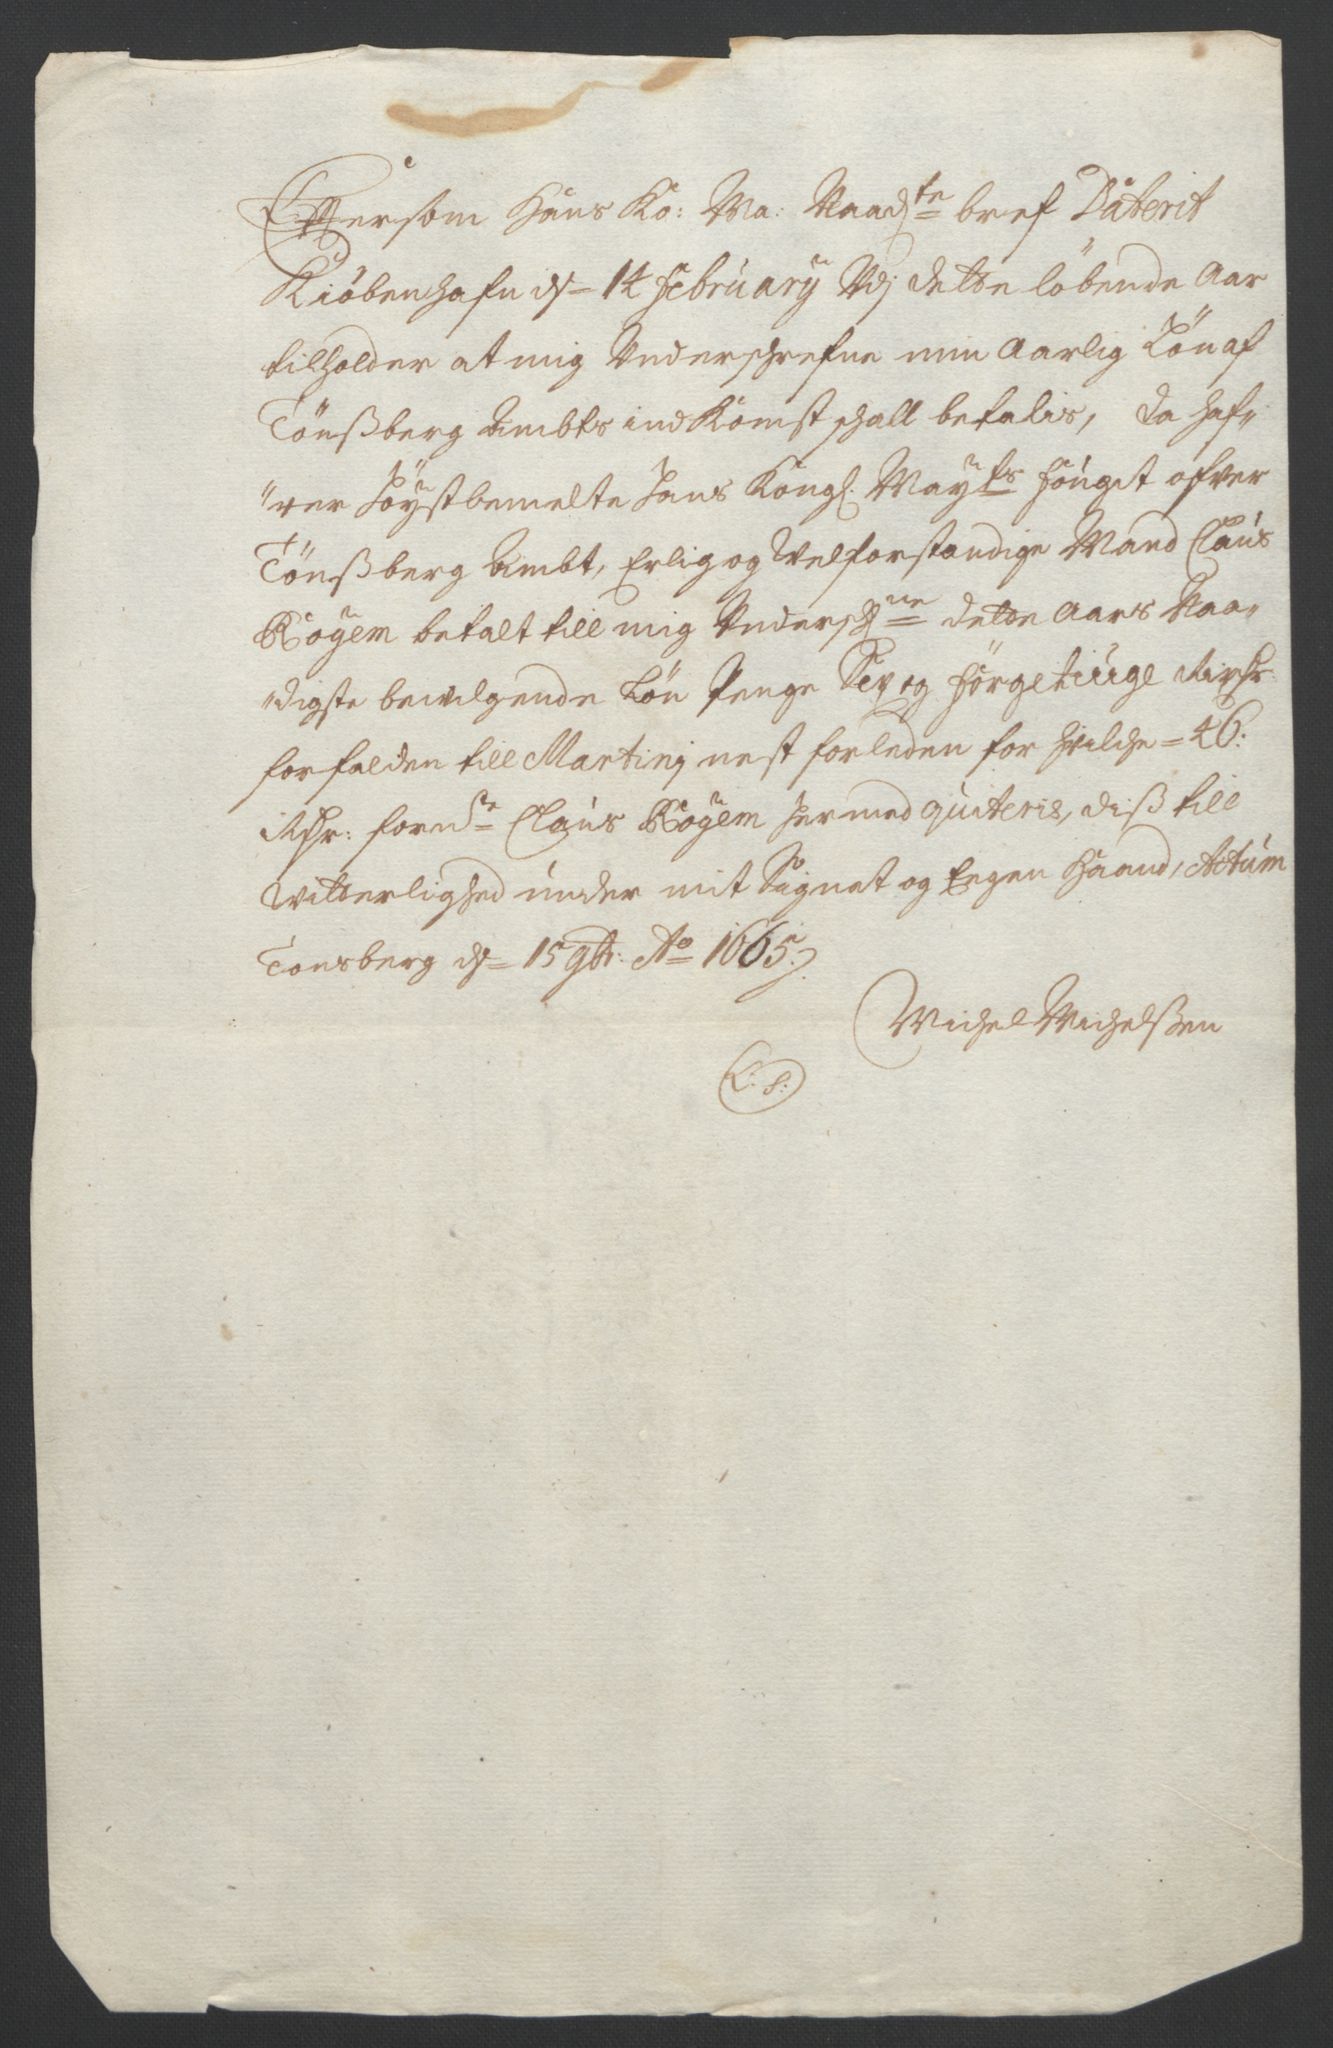 Effter som Hans Ko: Ma: Naadste bref Daterit
Kiöbenhafn d 14 February Udj dette löbende Aar
tilholder at mig Underschrefne min Aarlig Lön af
Tönßberg Ambts ind Komst schall betalis, da haf„
„ver Höystbemelte Hans Kongl. Mayts fougit ofver
Tönßberg Ambt, Erlig og Velforstandige Mand Claus
Røyem betalt till mig Underschne dette Aars Naa„
„digste bevilgende Lön Penge Sex og förgetiuge Rixdr
forfalden till Martinj nest forleden for hvilche 46:
Rdr: fornde Claus Røyem hermed quiteris, diß till
Vitterlighed under mit Signet og Eegen Haand, Actum
Tonsberg d 15 9br: Ao 1665.
Michel Michelßen
L: S: